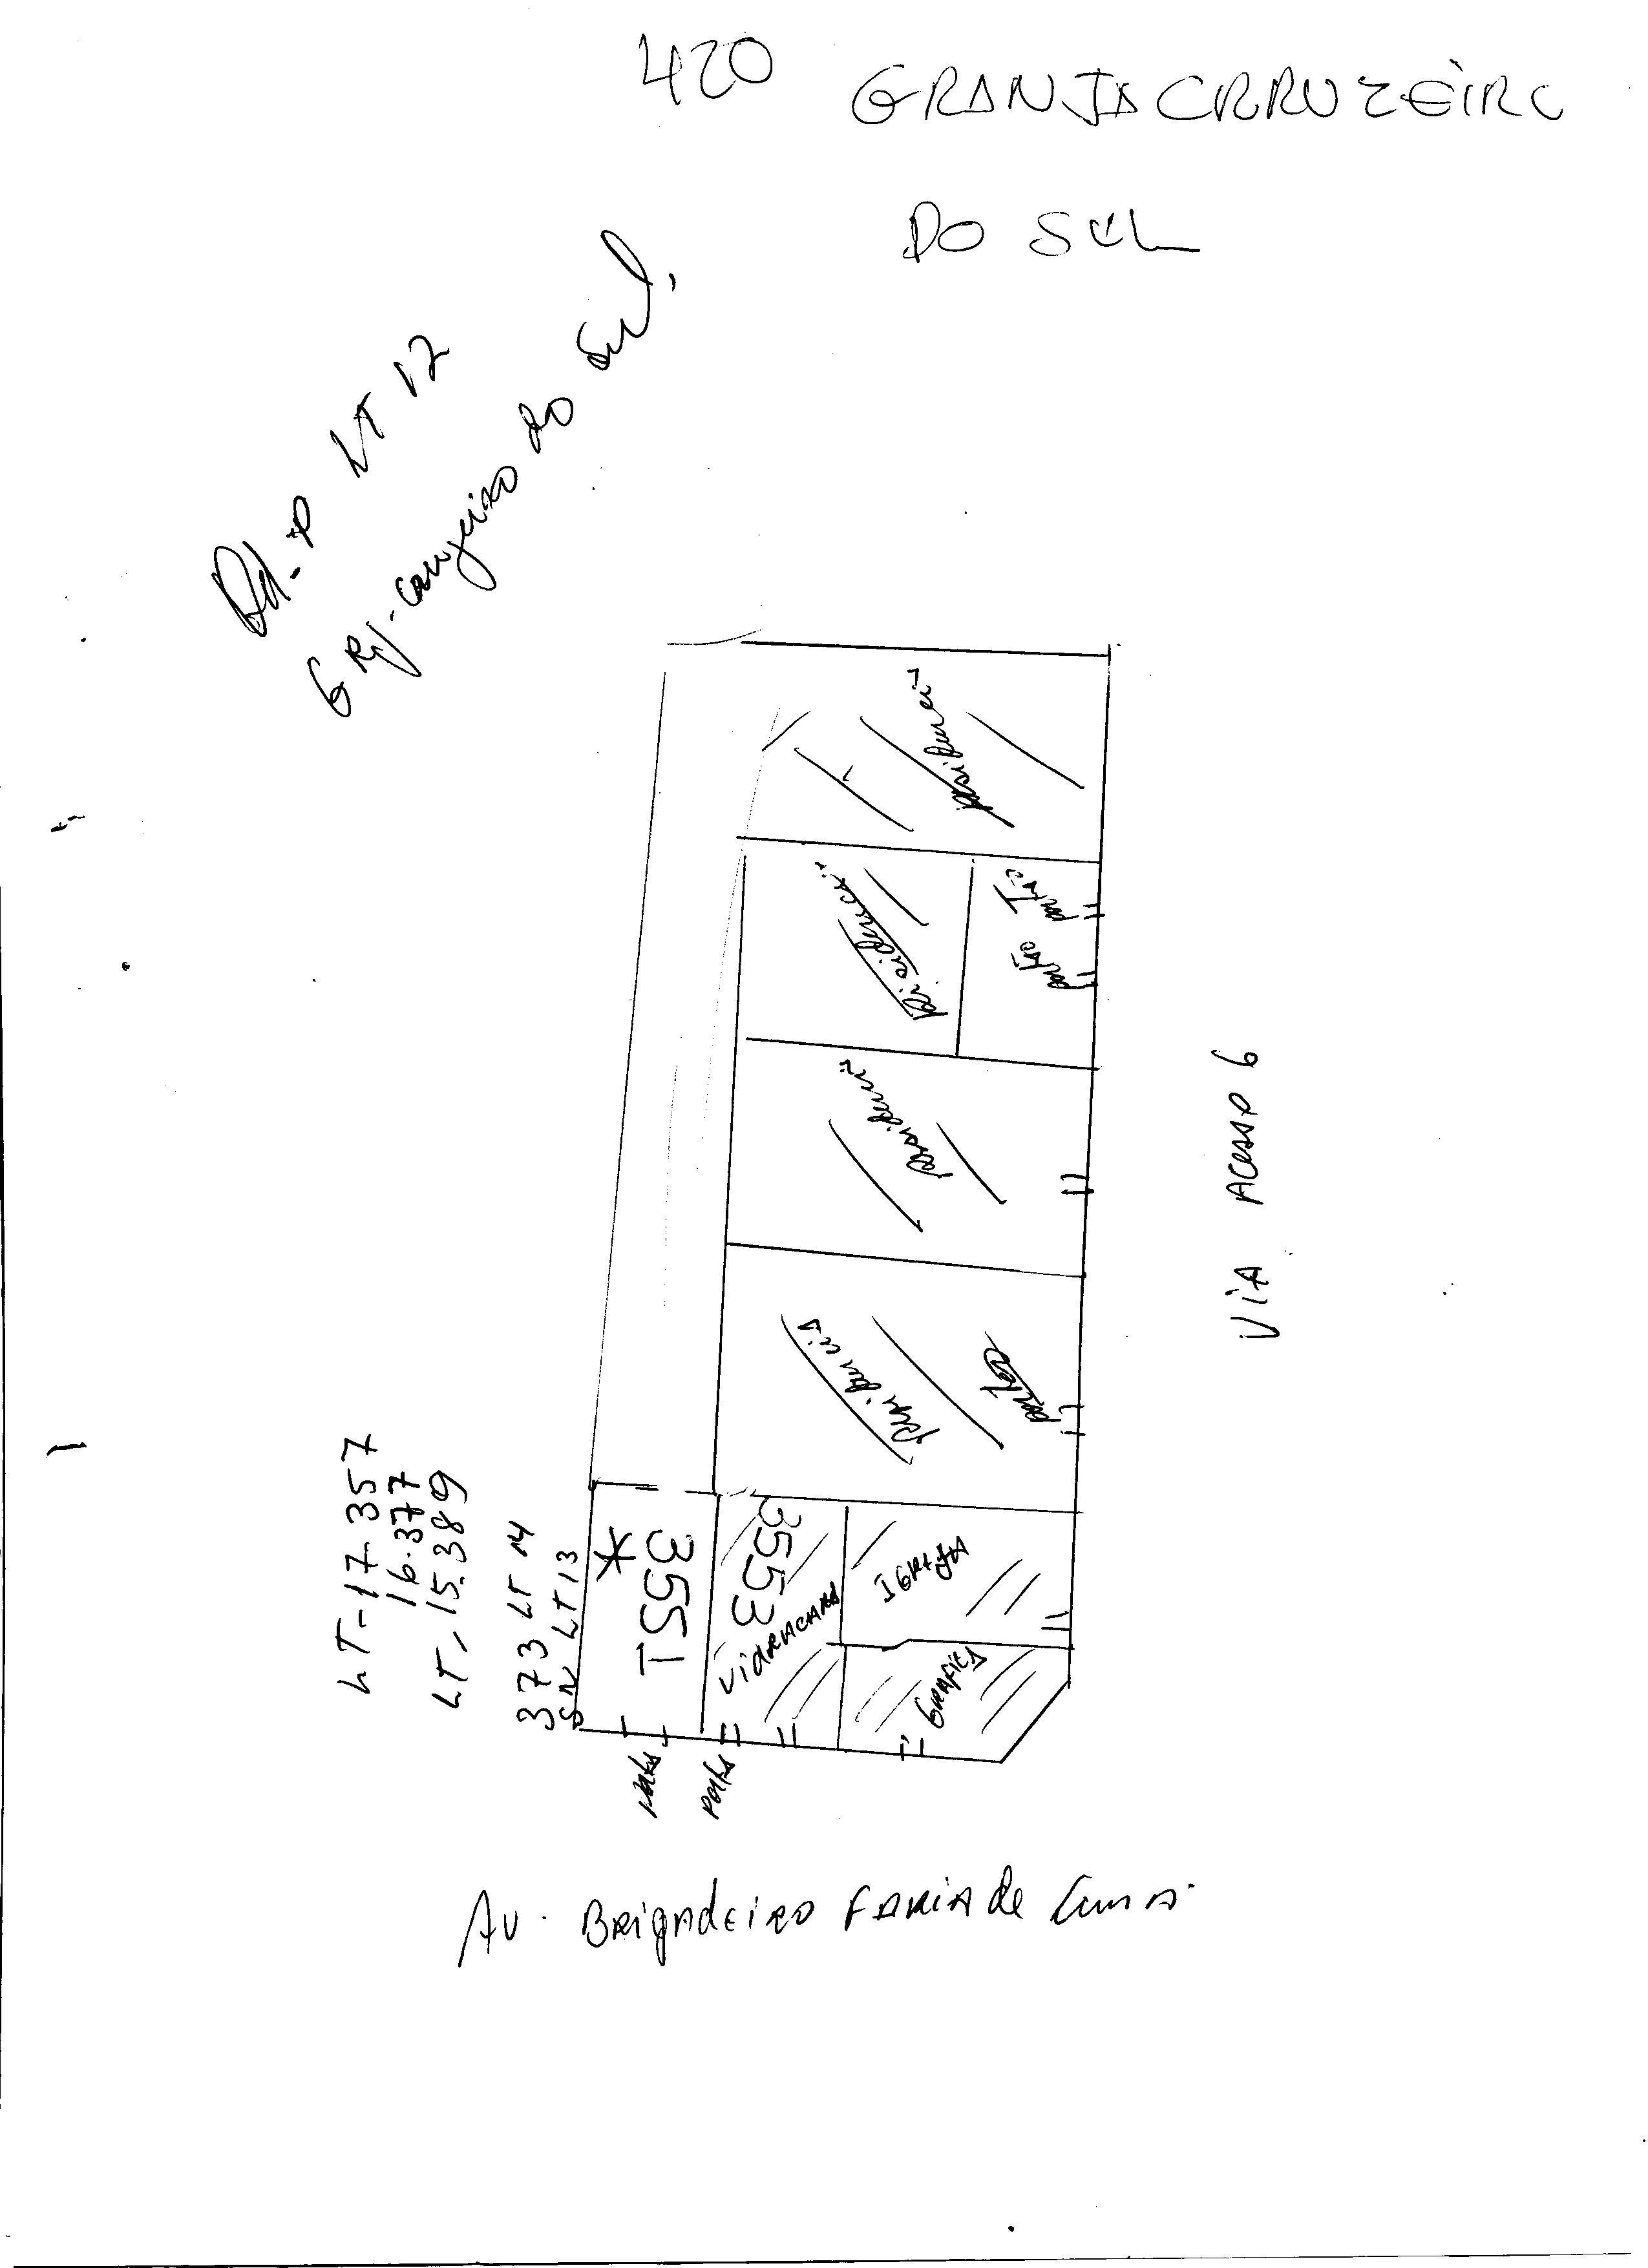 420 GRANJA CRRUZEIRO
DO SUL
Qd-P LT 12
GRJ-cruzeiro do Sul.
portão
portão
Residencia
portão
VIA Acesso 6
LT-17-357
16.377
LT, 15.389
373 LT 14
SN LT 13
*
3551
3553
VIDRACARA
IGREJA
GRAFICA
Av. BRigAdEiRO FARIA de Lima